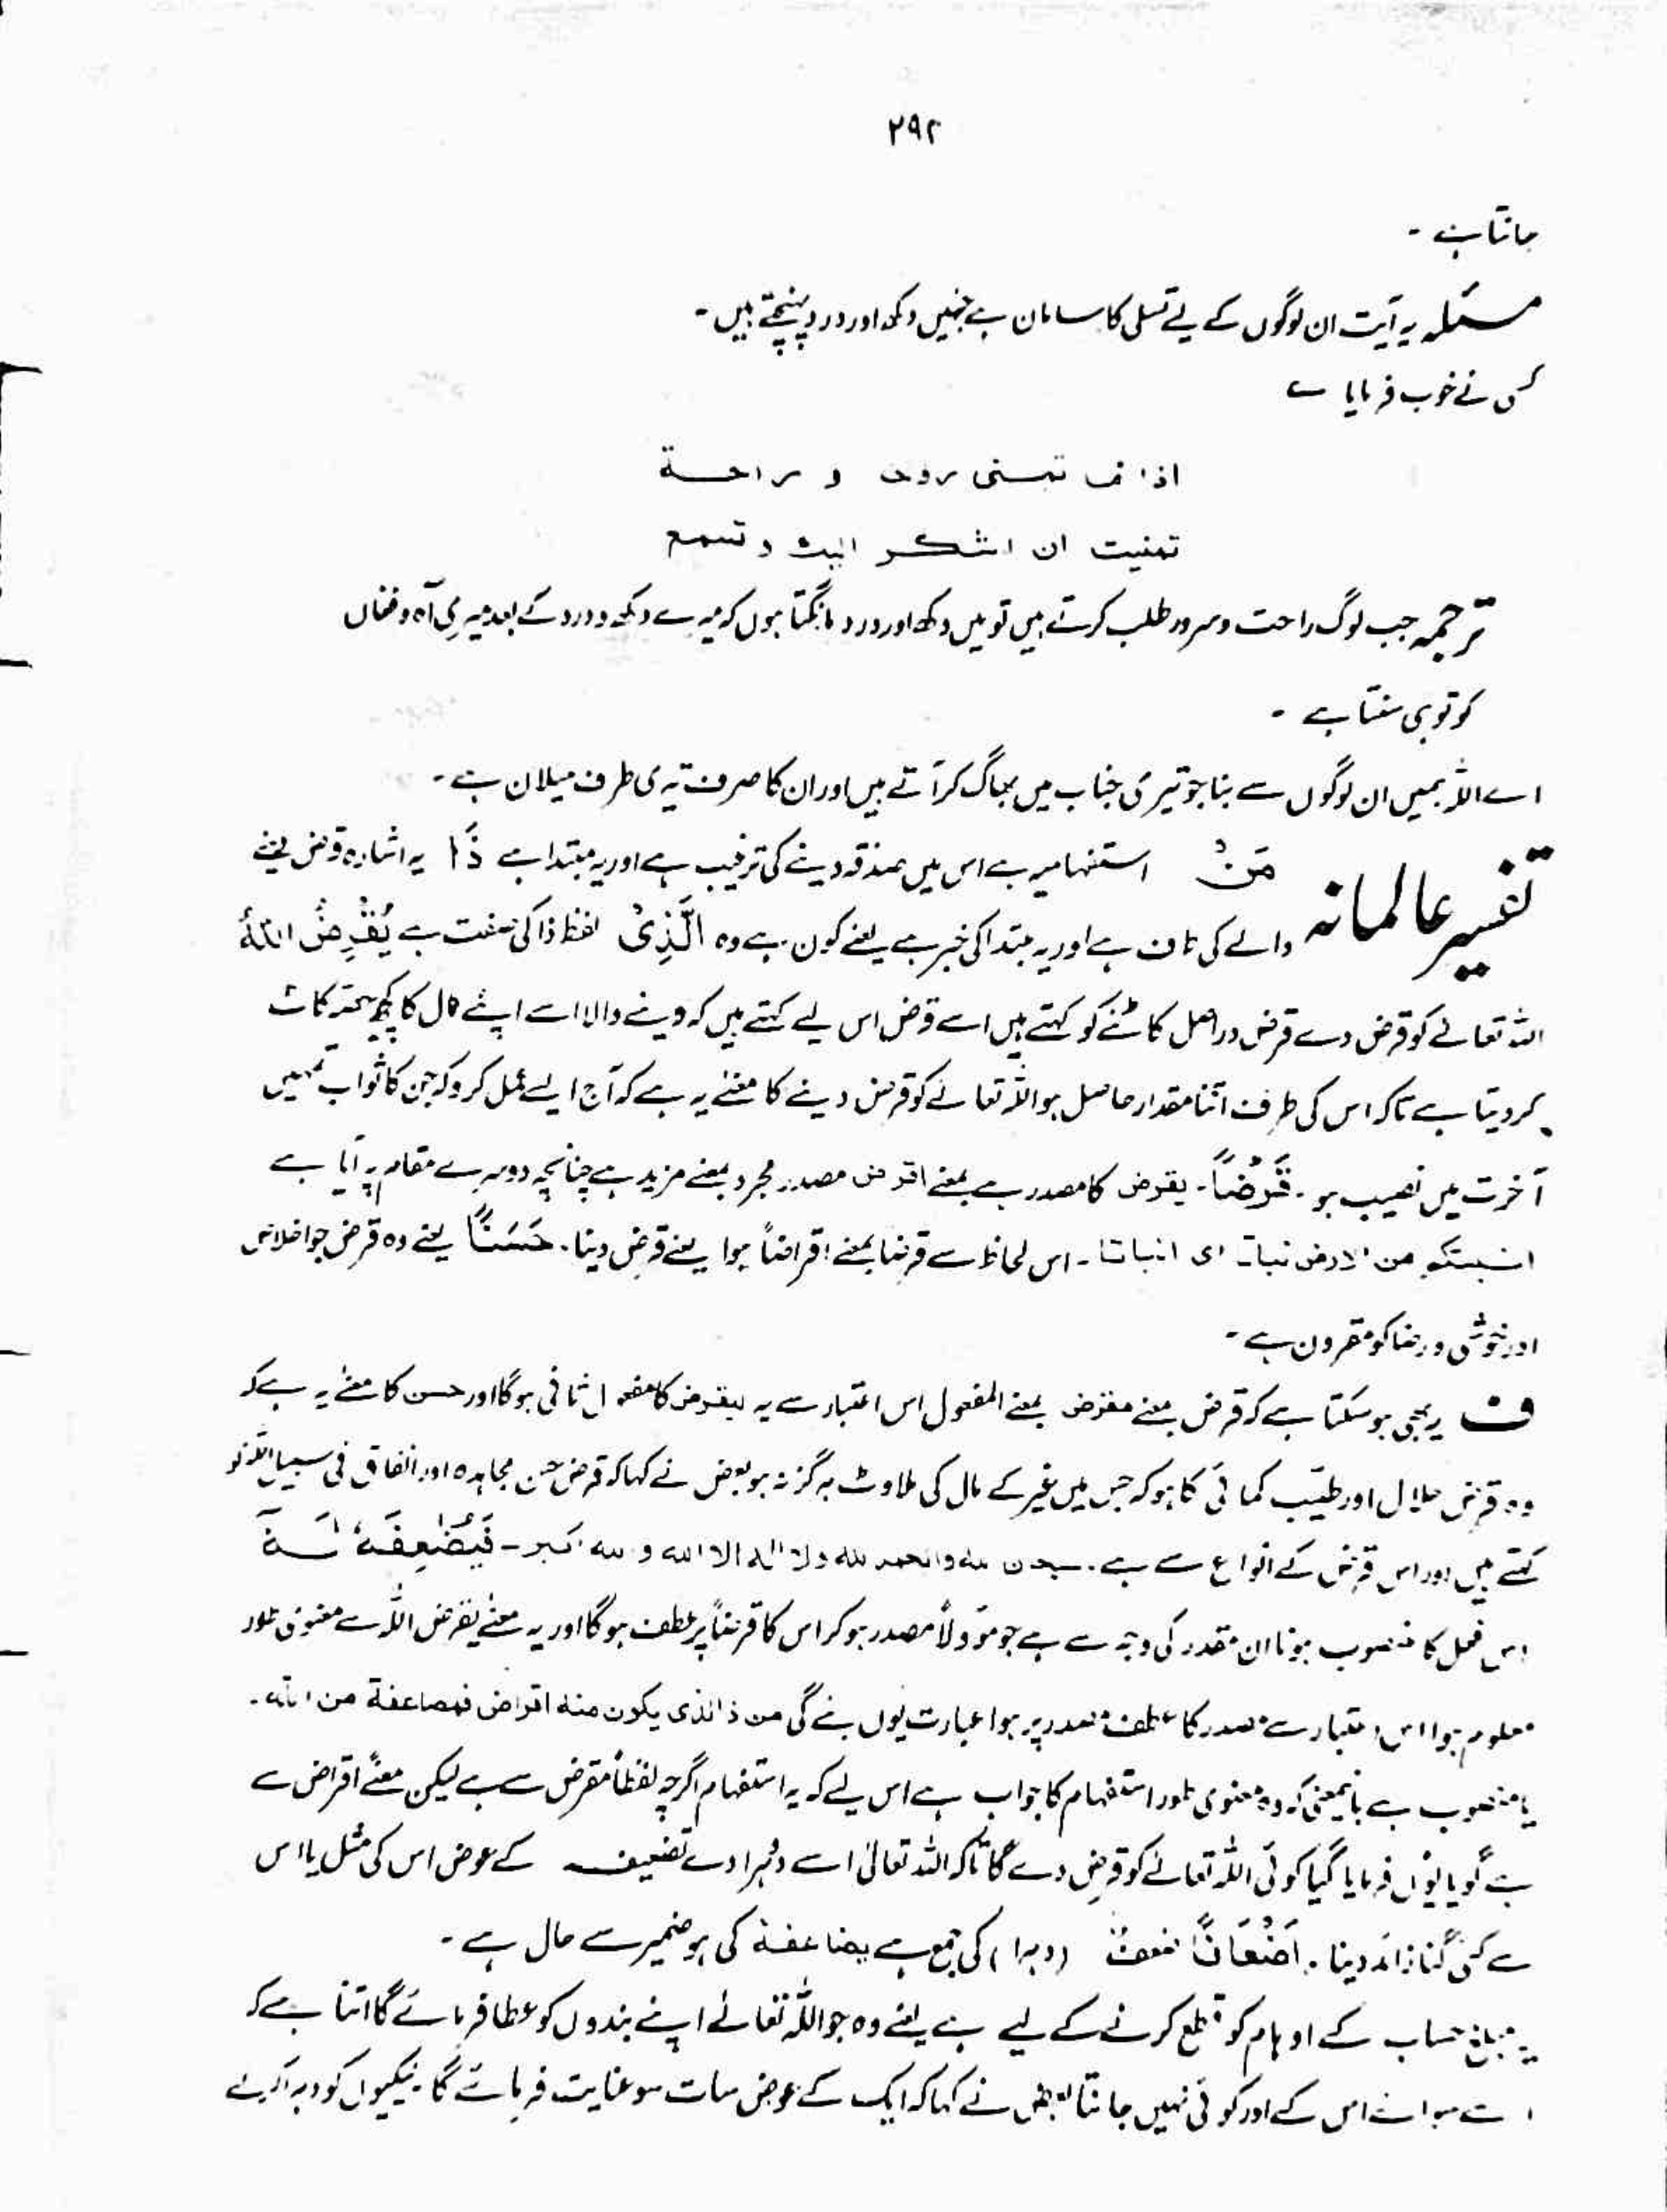 ۲۹۲
جانتا ہے ۔
مسئلہ یہ آیت ان لوگوں کے لیے تسلی کا سامان ہے جنہیں دکھ اور درد پہنچتے ہیں ۔
کسی نے خوب فرمایا ے
اذا تمنی روح و راحة
تمنیت ان اشکر الیک و تسمع
ترجمہ جب لوگ راحت و سرور طلب کرتے ہیں تو میں دکھ اور درد مانگتا ہوں کہ میرے دکھ و درد کے بعد میری آہ و فغاں
کو تو ہی سنتا ہے ۔
اے اللہ ہمیں ان لوگوں سے بنا جو تیری جناب میں بھاگ کر آتے ہیں اور ان کا صرف تیری طرف میلان ہے ۔
تفسیر عالمانہ مَنْ استفہامیہ ہے اس میں صدقہ دینے کی ترغیب ہے اور یہ مبتدا ہے ذَا یہ اشارہ قرض لینے
والے کی طرف ہے اور یہ مبتدا کی خبر ہے یعنے کون ہے وہ الَّذِیْ لفظ ذا کی صفت ہے یُقْرِضُ اللهَ
اللہ تعالے کو قرض دے قرض دراصل کاٹنے کو کہتے ہیں اسے قرض اس لیے کہتے ہیں کہ دینے والا اسے اپنے مال کا کچھ حصہ کاٹ
کر دیتا ہے تاکہ اس کی طرف اتنا مقدار حاصل ہو اللہ تعالے کو قرض دینے کا معنےٰ یہ ہے کہ آج ایسے عمل کرو کہ جن کا ثواب تمہیں
آخرت میں نصیب ہو ۔ قَرْضًا ۔ یقرض کا مصدر ہے بمعنے اقراض مصدر مجرد بمعنے مزید ہے چنانچہ دوسرے مقام پر آیا ہے
انبتکم من الارض نباتا ای انباتا ۔ اس لحاظ سے قرضا بمعنے اقراضاً ہوا یعنے قرض دینا ۔ حَسَنًا یعنے وہ قرض جو اخلاص
اور خوشی و رضا کو مقرون ہے ۔
ف یہ بھی ہو سکتا ہے کہ قرض بمعنے مقرض بمعنے المفعول اس اعتبار سے یہ یقرض کا مفعول ثانی ہوگا اور حسن کا معنےٰ یہ ہے کہ
وہ قرض حلال اور طیّب کمائی کا ہو کہ جس میں غیر کے مال کی ملاوٹ ہرگز نہ ہو بعض نے کہا کہ قرض حسن مجاہدہ اور انفاق فی سبیل اللہ کو
کہتے ہیں اور اس قرض کے انواع سے ہے ۔ سبحن الله والحمد لله ولا اله الا الله والله اکبر ۔ فَیُضٰعِفَهٗ لَهٗ
اس فعل کا منصوب ہونا ان مقدر کی وجہ سے ہے جو مؤولاً مصدر ہو کر اس کا قرضاً پر عطف ہوگا اور یہ معنےٰ یقرض اللہ سے معنوی طور
معلوم ہوا اس اعتبار سے مصدر کا عطف مصدر پر ہوا عبارت یوں بنے گی من ذا الذی یکون منه اقراض فمضاعفة من الله ۔
یا منصوب ہے بایمعنی کہ وہ معنوی طور استفہام کا جواب ہے اس لیے کہ یہ استفہام اگرچہ لفظاً مقرض سے ہے لیکن معنًے اقراض سے
ہے گویا یوں فرمایا گیا کوئی اللہ تعالےٰ کو قرض دے گا تاکہ اللہ تعالیٰ اسے دُہرا دے تضعیف کے عوض اس کی مثل یا اس
سے کئی گنا زائد دینا ۔ اَضْعَافًا ضعف (دہرا) کی جمع ہے یضاعفه کی ہو ضمیر سے حال ہے ۔
یہ مبالغہ حساب کے اوہام کو قطع کرنے کے لیے ہے یعنے وہ جو اللہ تعالےٰ اپنے بندوں کو عطا فرمائے گا اتنا ہے کہ
سوائے اس کے اور کوئی نہیں جانتا بعض نے کہا کہ ایک کے عوض سات سو عنایت فرمائے گا نیکیوں کو دہرا کرنے